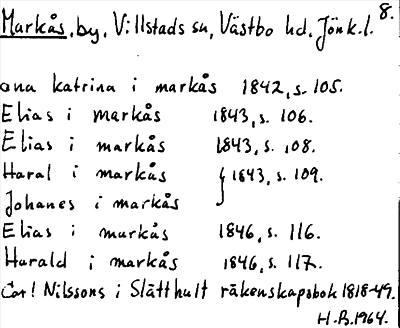 Markås, by, Villstads sn, Västbo hd, Jönk.l. 8.
ana katrina i markås 1842, s. 105.
Elias i markås 1843, s. 106.
Elias i markås 1843, s. 108.
Haral i markås } 1843, s. 109.
Johanes i markås
Elias i markås 1846, s. 116.
Harald i markås 1846, s. 117.
Carl Nilssons i Slätthult räkenskapsbok 1818-49.
H.B. 1964.